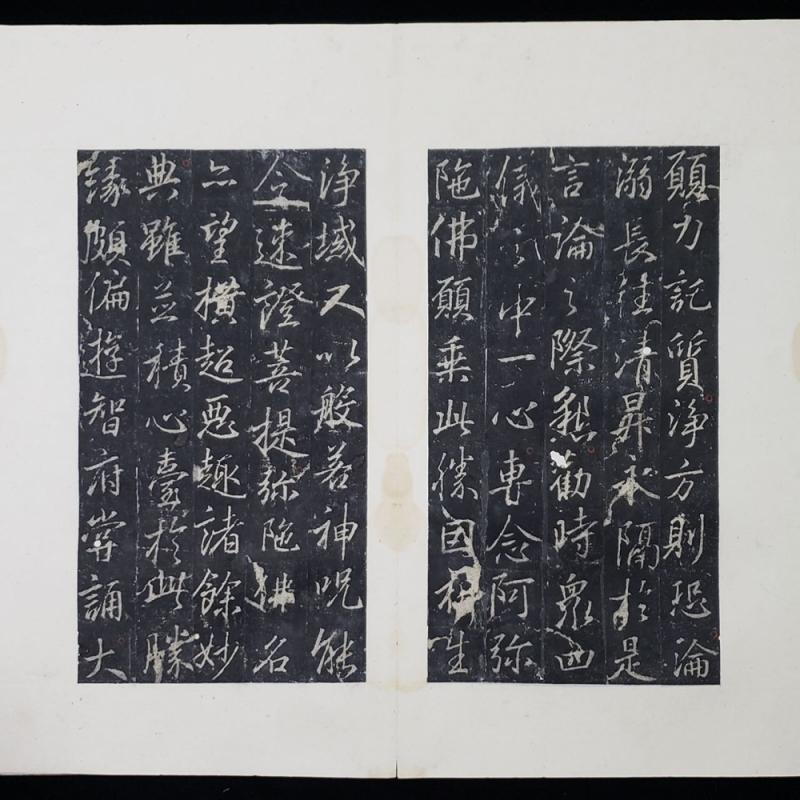 願力託質淨方則恐淪
溺長往清昇永隔於是
言論之際懇勸時衆四
儀之中一心專念阿弥
陁佛願乘此勝因祈生
淨域又以般若神呪能
令速證菩提弥陁佛名
亦望橫超惡趣諸餘妙
典雖並積心臺於此勝
緣頗偏遊智府嘗誦大